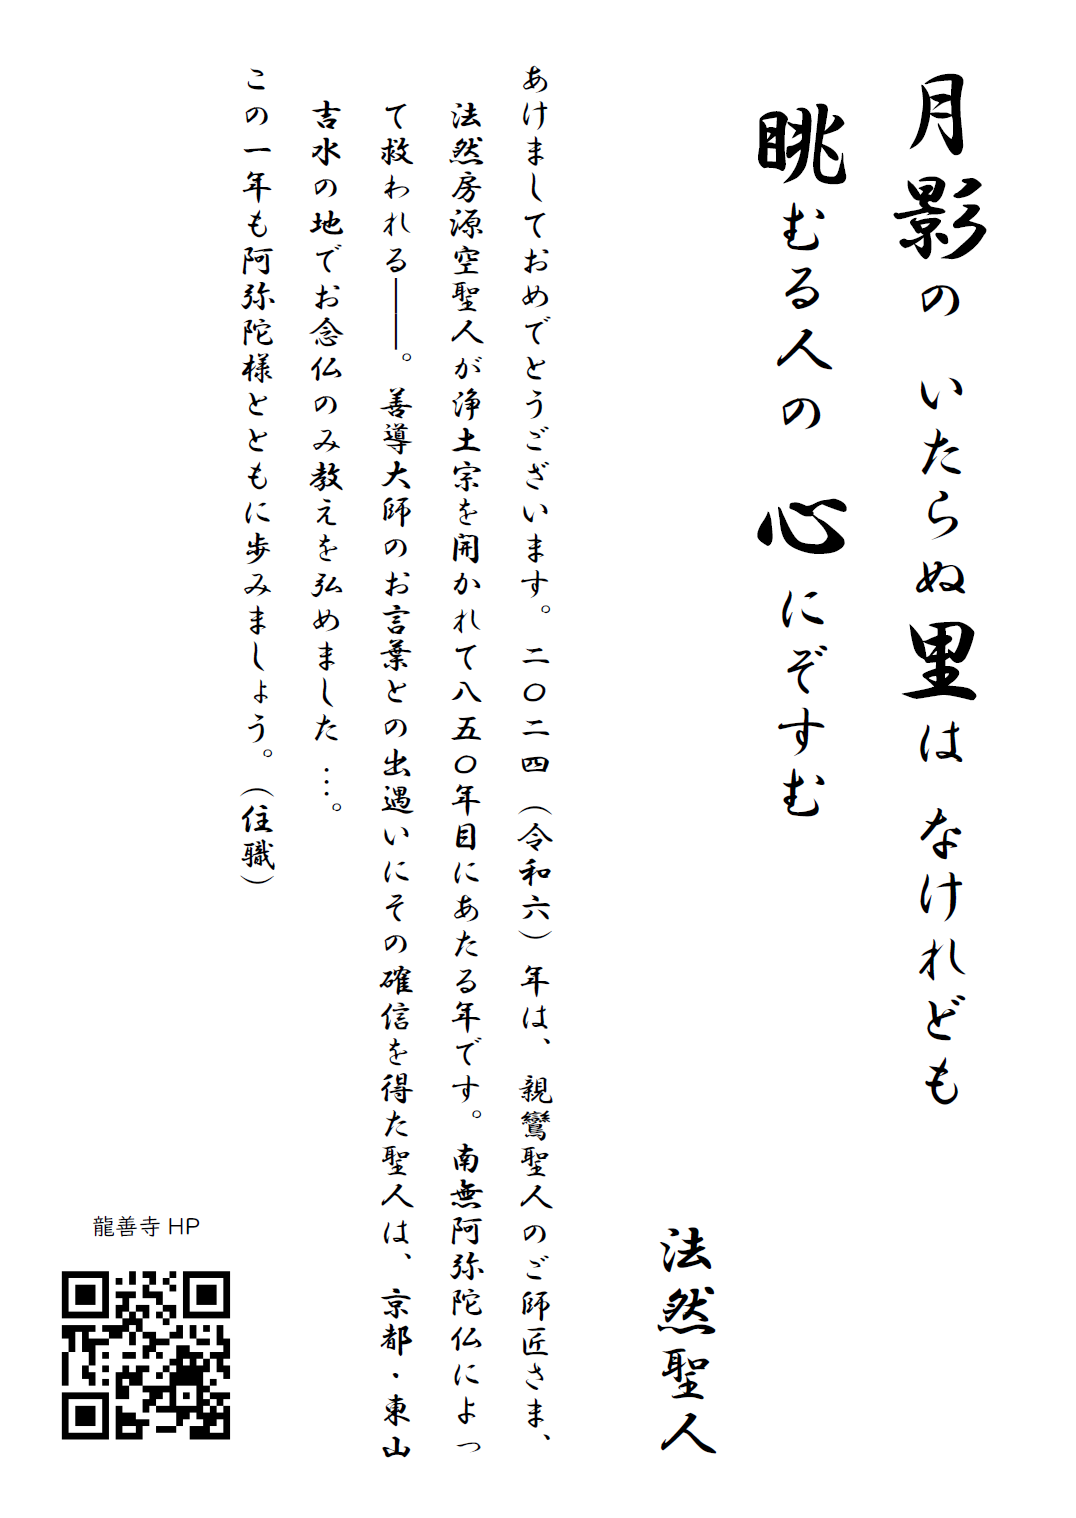 月影の いたらぬ里は なけれども
眺むる人の 心にぞすむ
法然聖人
あけましておめでとうございます。二〇二四（令和六）年は、親鸞聖人のご師匠さま、
法然房源空聖人が浄土宗を開かれて八五〇年目にあたる年です。南無阿弥陀仏によっ
て救われる――。善導大師のお言葉との出遇いにその確信を得た聖人は、京都・東山
吉水の地でお念仏のみ教えを弘めました…。
この一年も阿弥陀様とともに歩みましょう。（住職）
龍善寺 HP